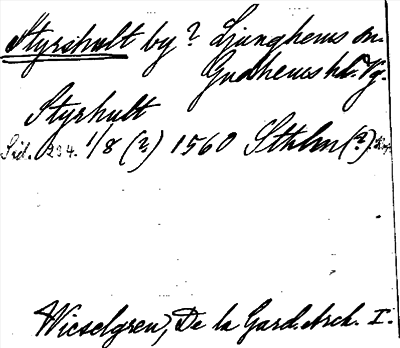 Styrshult by? Ljunghems sn.
Gudhems hd. Vg.
Styrhult
Sid. 234. 1/8 (?) 1560 Sthlm (?).
Wieselgren, De la Gard. Arch. I.